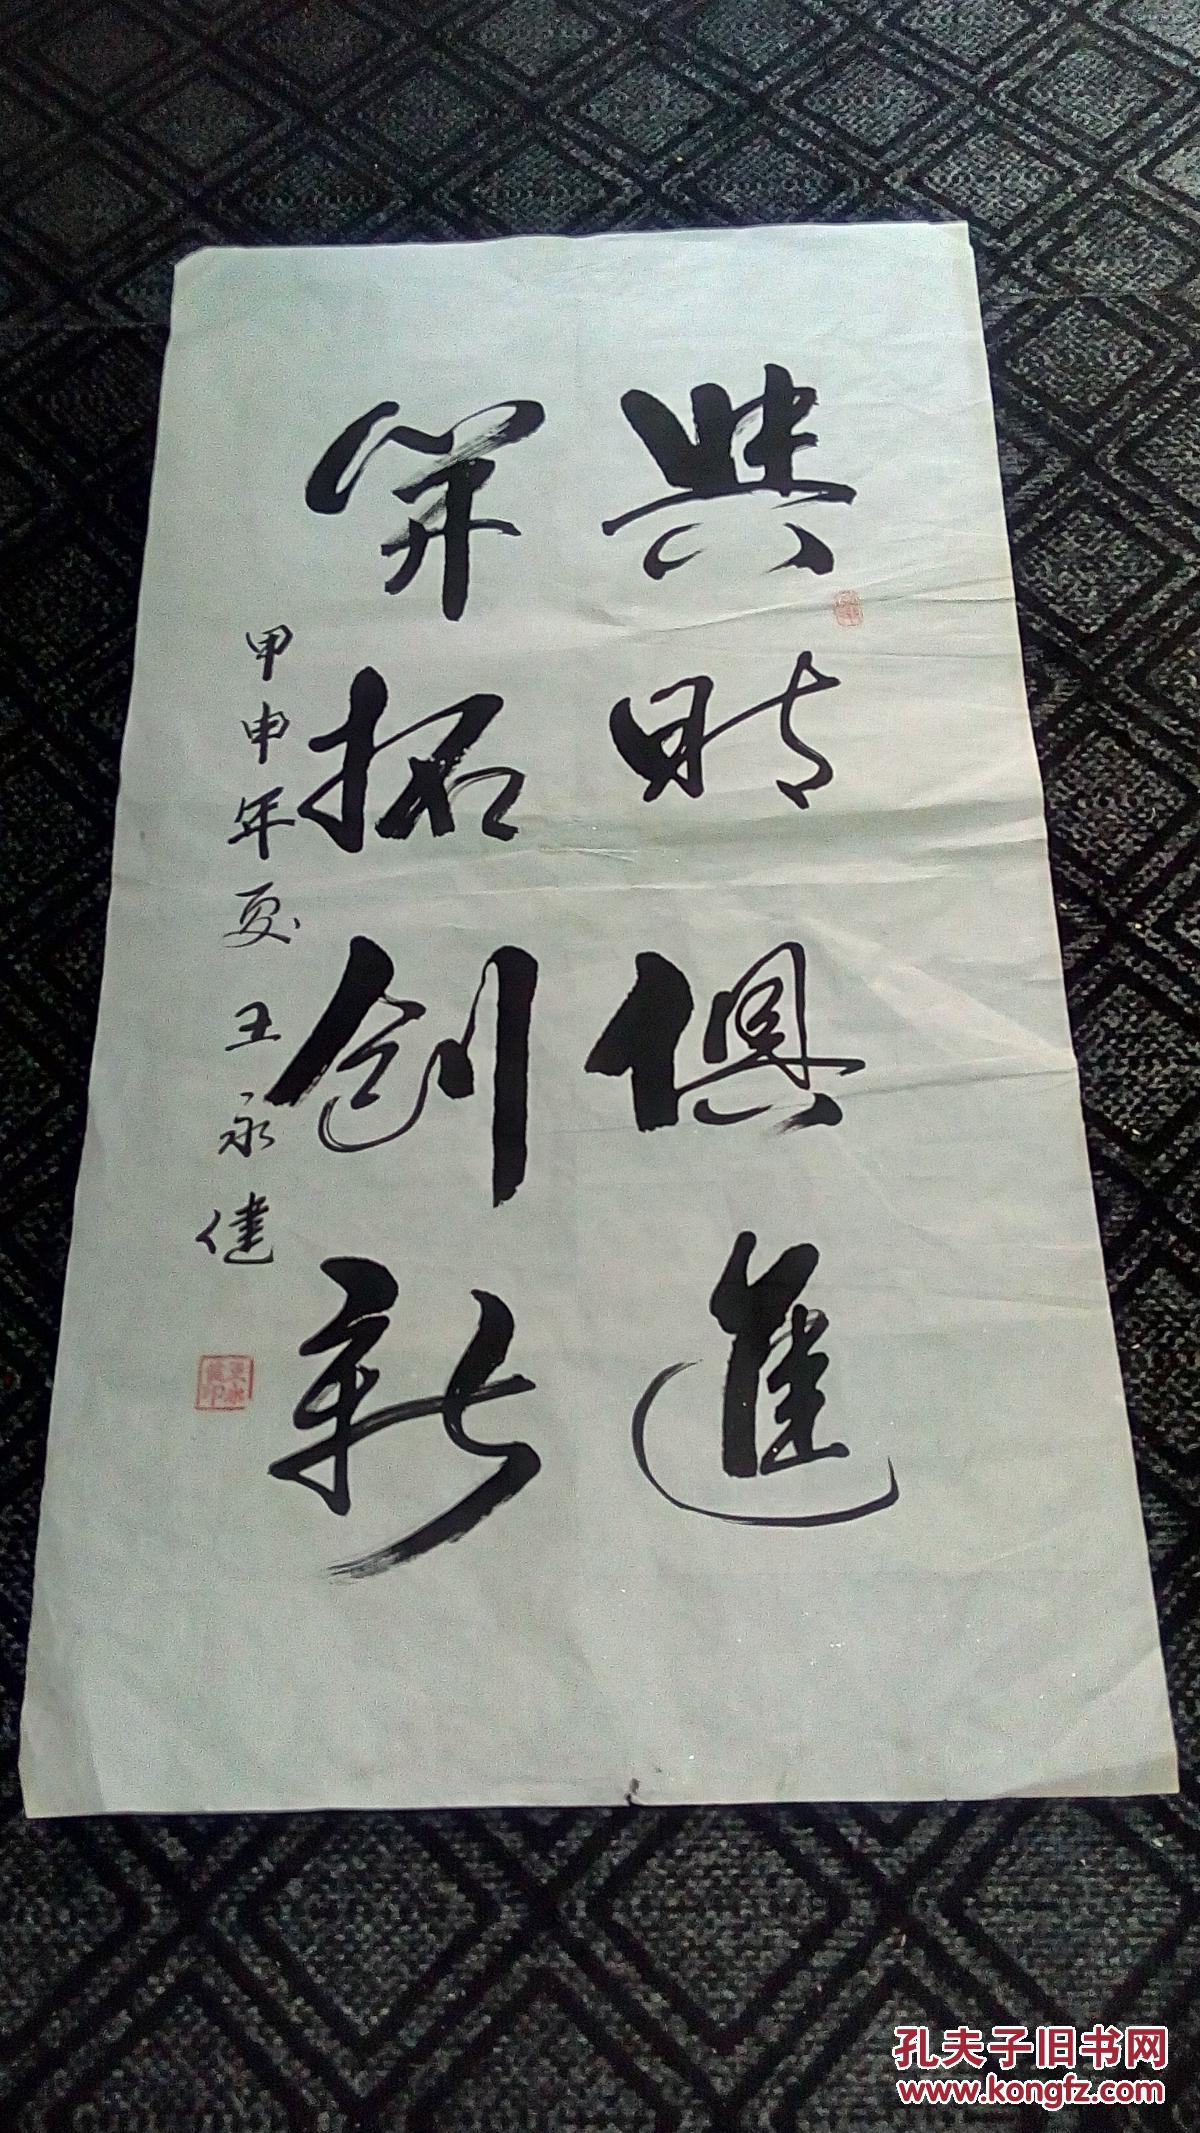 與時俱進
開拓創新
甲申年夏 王永健
王永健印
孔夫子旧书网
www.kongfz.com